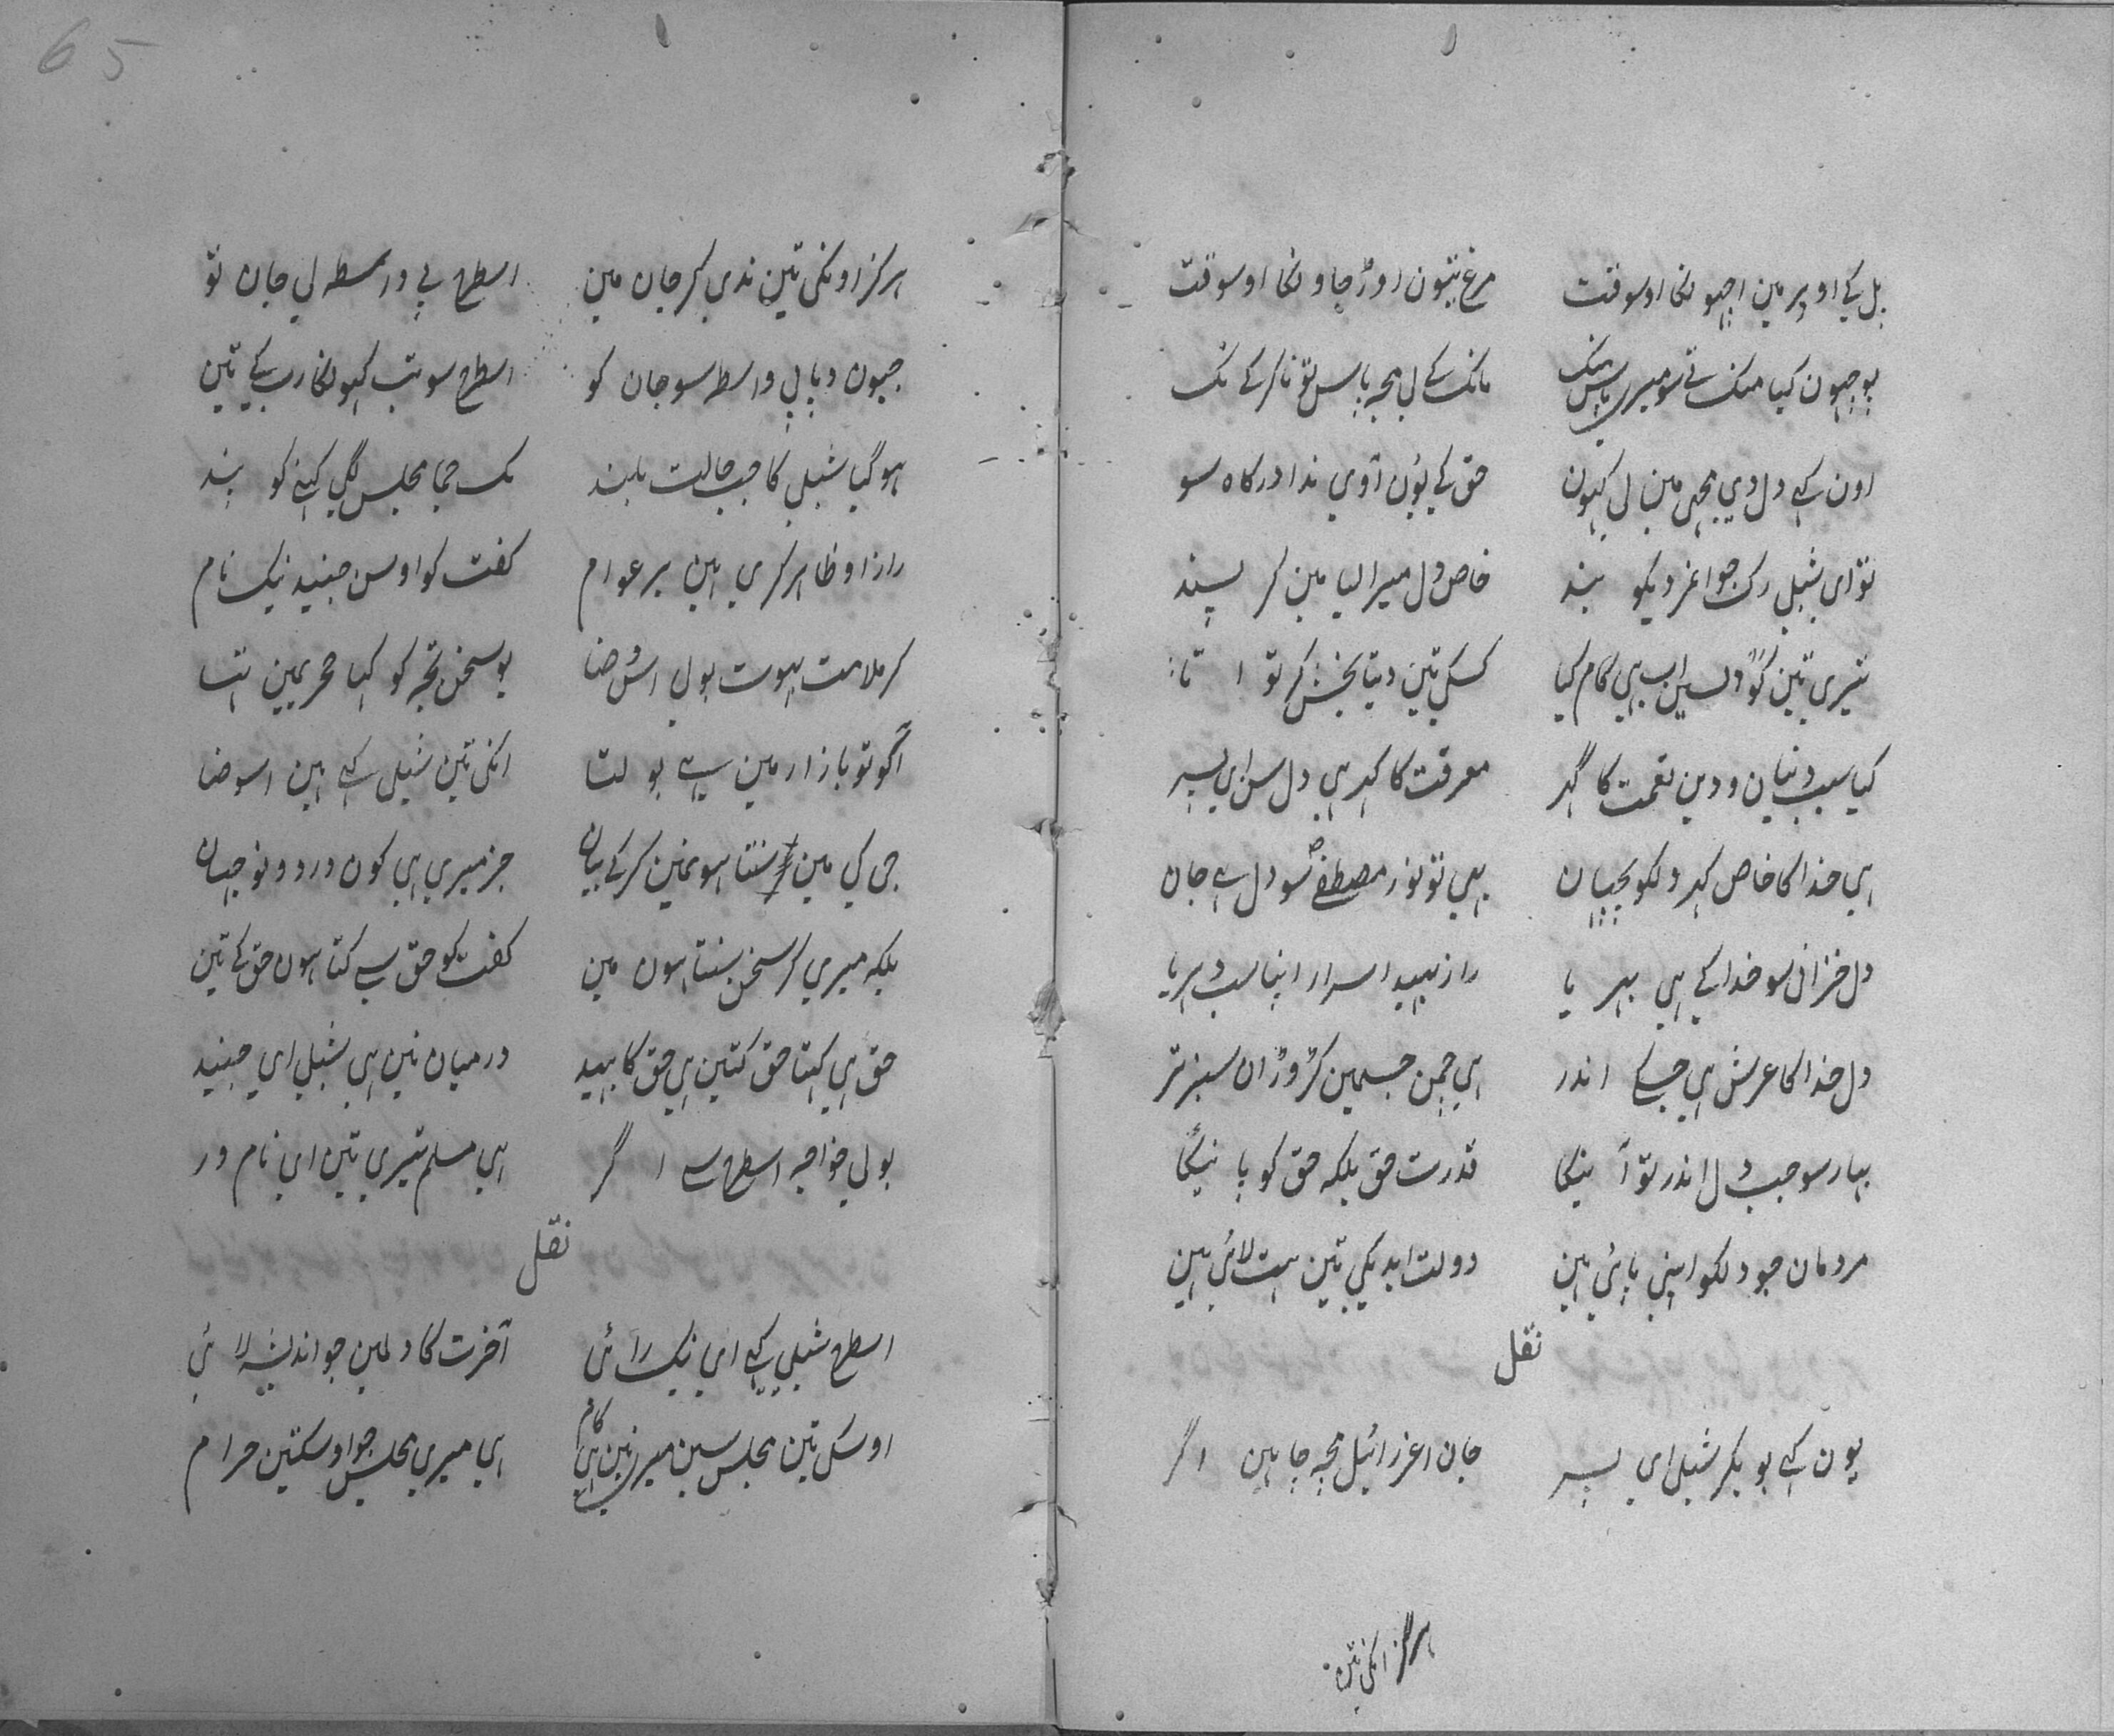 پل کے اوپر مین اچھونکا اوسوقت مرغ نیون اوڑ جاونکا اوسوقت
پوچھون کیا منک تے سو میری پاس مانک لے مجہ پاس تو ناکر کے نک
اون کہے دل دی مجھی مین لی کہون حق کے یون آوی ندا درکاہ سو
تو ای شبلی رک جواغز دیکو بند خاص دل میرا لیا مین کر پسند
تیری تین اب یہی کام کیا کسکی تین دیتا بخش کر تو
کیا سبب دنیان و دین نعمت کا گہر معرفت کا گہر ہی دل سن ای پسر
ہی خدا کا خاص گہر دلکو پچھان بہی تو نور مصطفے سو دل ہے جان
دل خزانی سو خدا کے ہی بہر یا راز بہید اسرار اپنا سب دہریا
دل خدا کا عرش ہی جسکے اندر ہی چمن جسمین کڑوڑان سبز تر
بہار سو جب دل اندر تو آئینکا قدرت حق بلکہ حق کو پائینکا
مردمان جو دلکو اپنی پائی ہین دولت ابدیکی تین ہت لائی ہین
نقل
یون کہے بو بکر شبلی ای پسر جان اعزرائیل مجہ چاہین اگر
ہرگز انکی تین
65
ہرکز اونکی تین ندی کر جان مین اسطرح بے واسطہ لی جان تو
جیون دیا بی واسطہ سو جان کو اسطرح سونب کہونکا رب کے تین
ہوگیا شبلی کا جب حالت بلند یک جا مجلس لگی کہنے کو بند
راز او ظاہر کری ہین بر عوام گفت کو اوسن جنید نیک نام
کر ملامت بہوت بولی اس وضا یو سخن تجہ کو کیا محرمین اتہا
اگو تو بازار مین سے بولتا انکی تین شبلی کہے ہین اس وضا
جی کی مین سنتا ہون مین کر کے بیان جز میری ہی کون در دو نو جہان
بلکہ میری کر سخن سنتا ہون مین گفت کو حق سے کتا ہون حق کے تین
حق ہی کہتا حق کتین ہی حق کا بہید درمیان نین ہی شبلی ای جنید
بولی خواجہ اسطرح سے اگر ہی مسلم تیری تین ای نام ور
نقل
اسطرح شبلی کہے ای نیک رائی آخرت کا دلمین جو اندیشہ لائی
اوسکی تین مجلس سین میری نین ہی کام ہی میری مجلس جو اوسکتین حرام